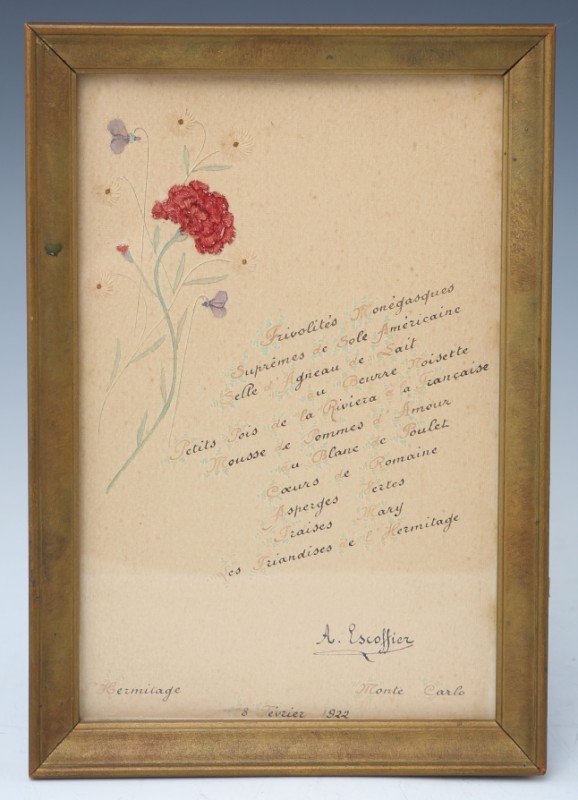 Frivolités Monégasques
Suprêmes de Sole Américaine
Selle d'Agneau de Lait
au Beurre Noisette
Petits Pois de la Riviera à la Française
Mousse de Pommes d'Amour
au Blanc de Poulet
Cœurs de Romaine
Asperges Vertes
Fraises Mary
Les Friandises de l'Hermitage
A. Escoffier
Hermitage Monte Carlo
8 Février 1922